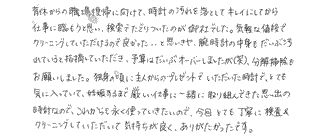 育休からの職場復帰に向けて、時計の汚れを落としてキレイにしてから
仕事に臨もうと思い、検索してたどりついたのが御社でした。気軽な値段で
クリーニングしていただけるので良かった…と思いきや、腕時計の中身もだいぶ汚
れていると指摘していただき、予算はだいぶオーバーしましたが(笑)、分解掃除も
お願いしました。独身の頃に主人からのプレゼントでいただいた時計で、とても
気に入っていて、妊娠するまで厳しい仕事に一緒に取り組んできた思い出の
時計なので、これからも永く使っていきたいので、今回とても丁寧に検査&
クリーニングしていただいて気持ちが良く、ありがたかったです。